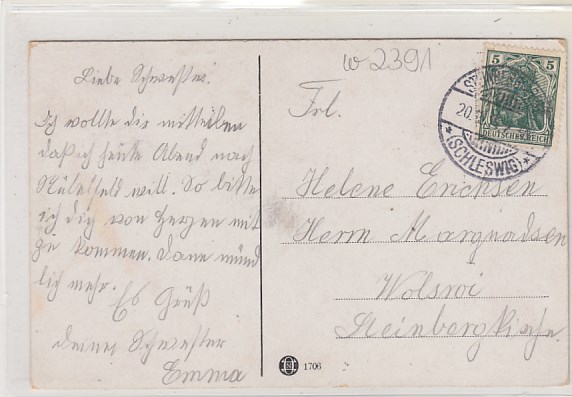 w 2391
Liebe Schwester.
Ich wollte dir mitteilen
daß ich heute Abend nach
will. So bitte
ich dich von Herzen mit
zu kommen. Dann münd
lich mehr. Es Grüß
deine Schwester
Emma
Frl.
Helene Erichsen
Herrn Marquadsen
Steinbergkirche.
5 5
DEUTSCHES REICH
20.
*(SCHLESWIG)*
1706